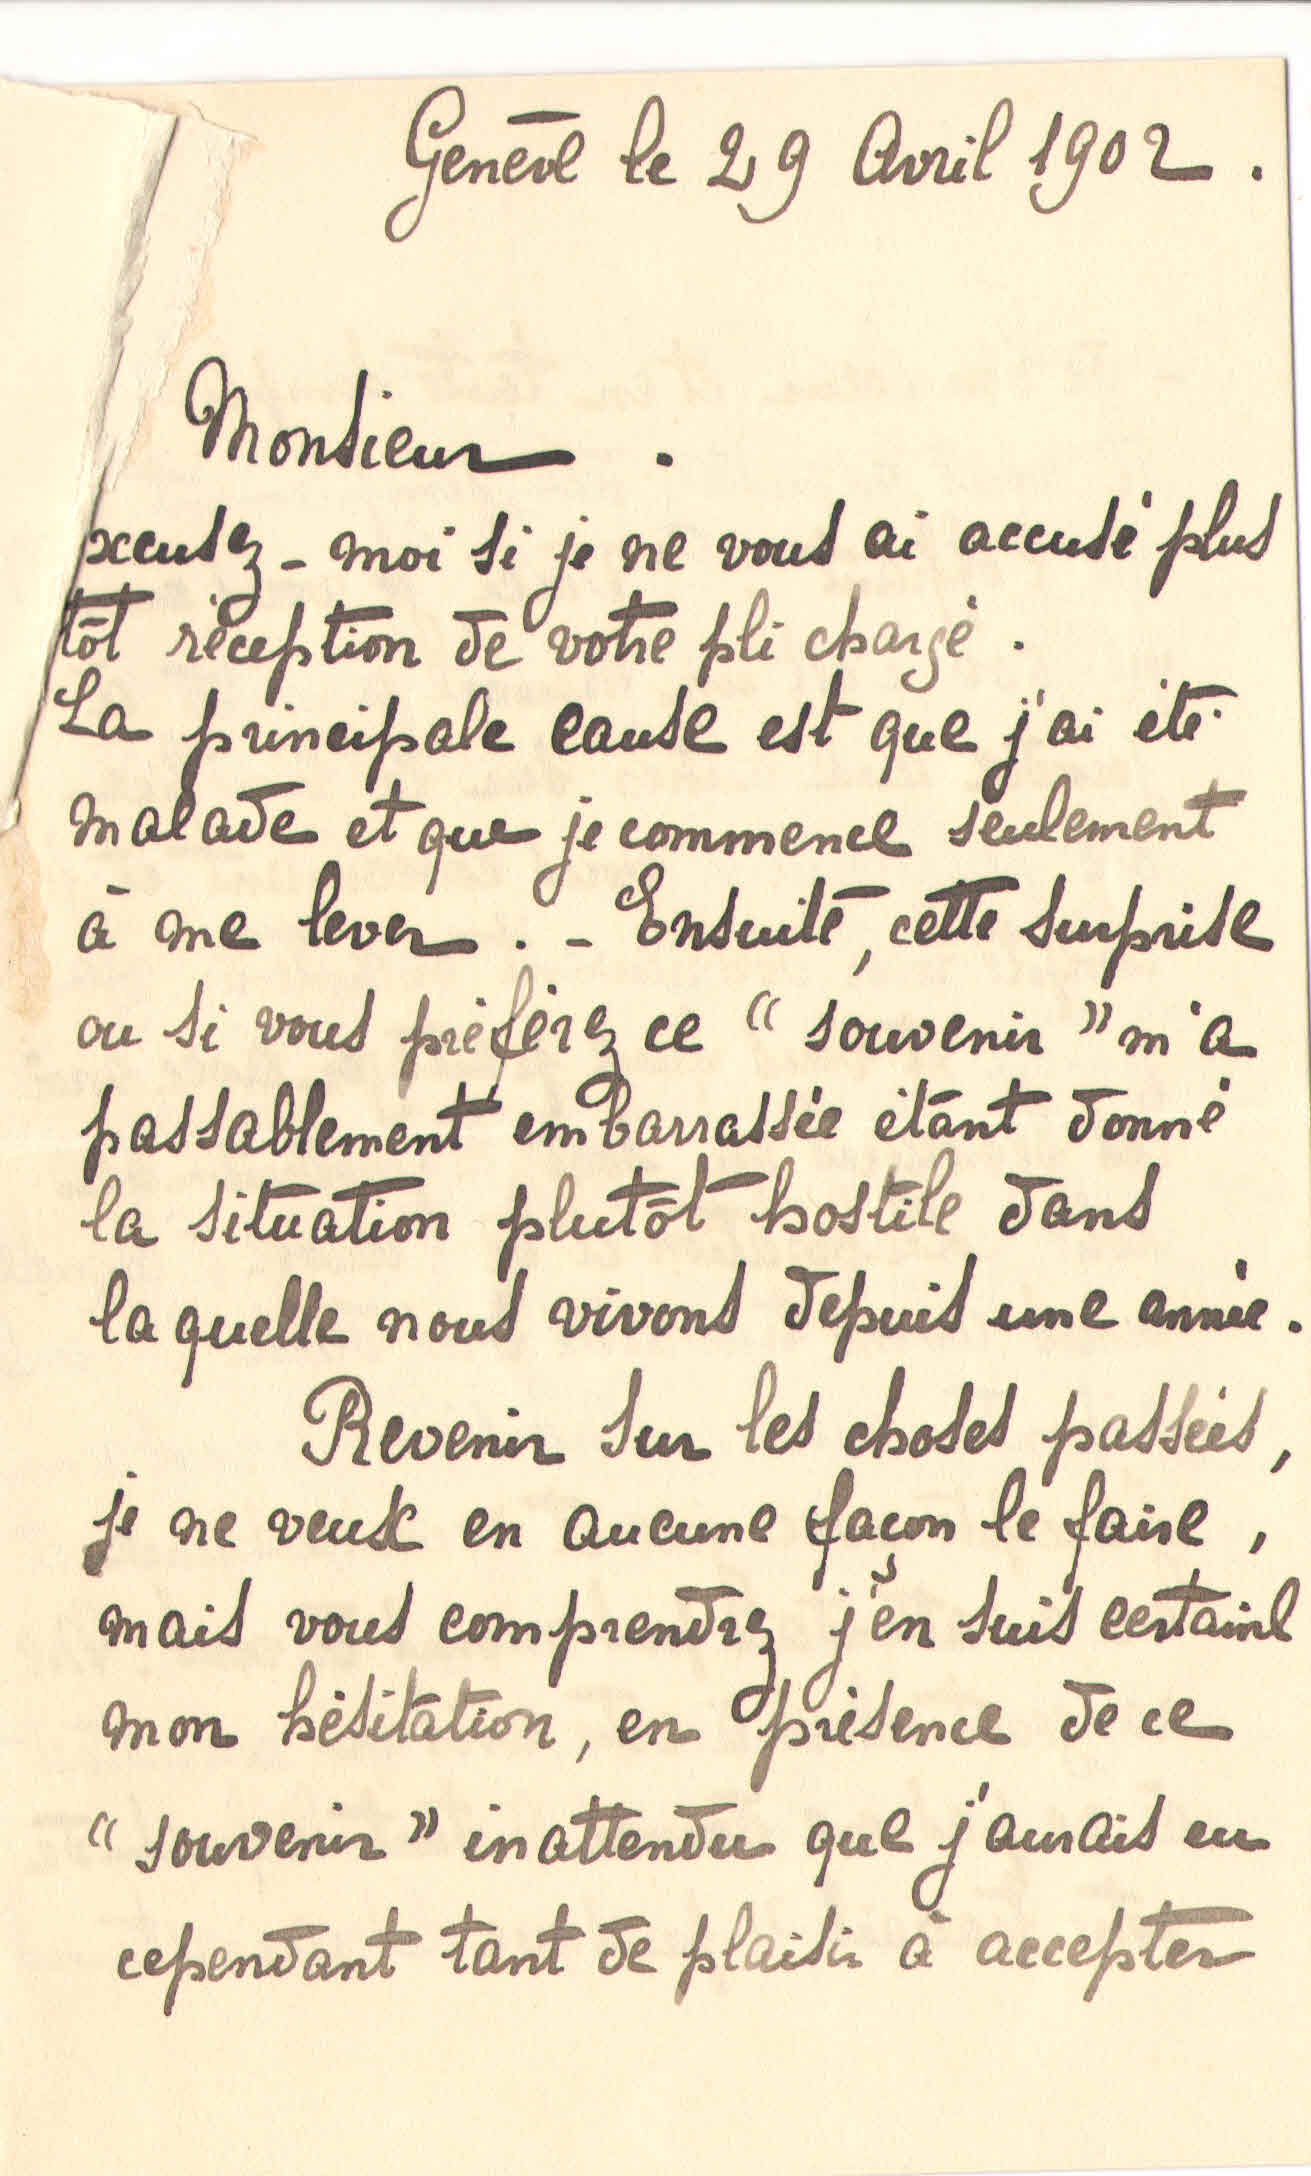 Genève le 29 Avril 1902.
Monsieur.
xcusez-moi si je ne vous ai accusé plus
tôt réception de votre pli chargé.
La principale cause est que j'ai été
malade et que je commence seulement
à me lever. - Ensuite, cette surprise
ou si vous préférez ce “souvenir” m'a
passablement embarrassée étant donné
la situation plutôt hostile dans
laquelle nous vivons depuis une année.
Revenir sur les choses passées,
je ne veux en aucune façon le faire,
mais vous comprendrez j'en suis certaine
mon hésitation, en présence de ce
“souvenir” inattendu que j'aurais eu
cependant tant de plaisir à accepter